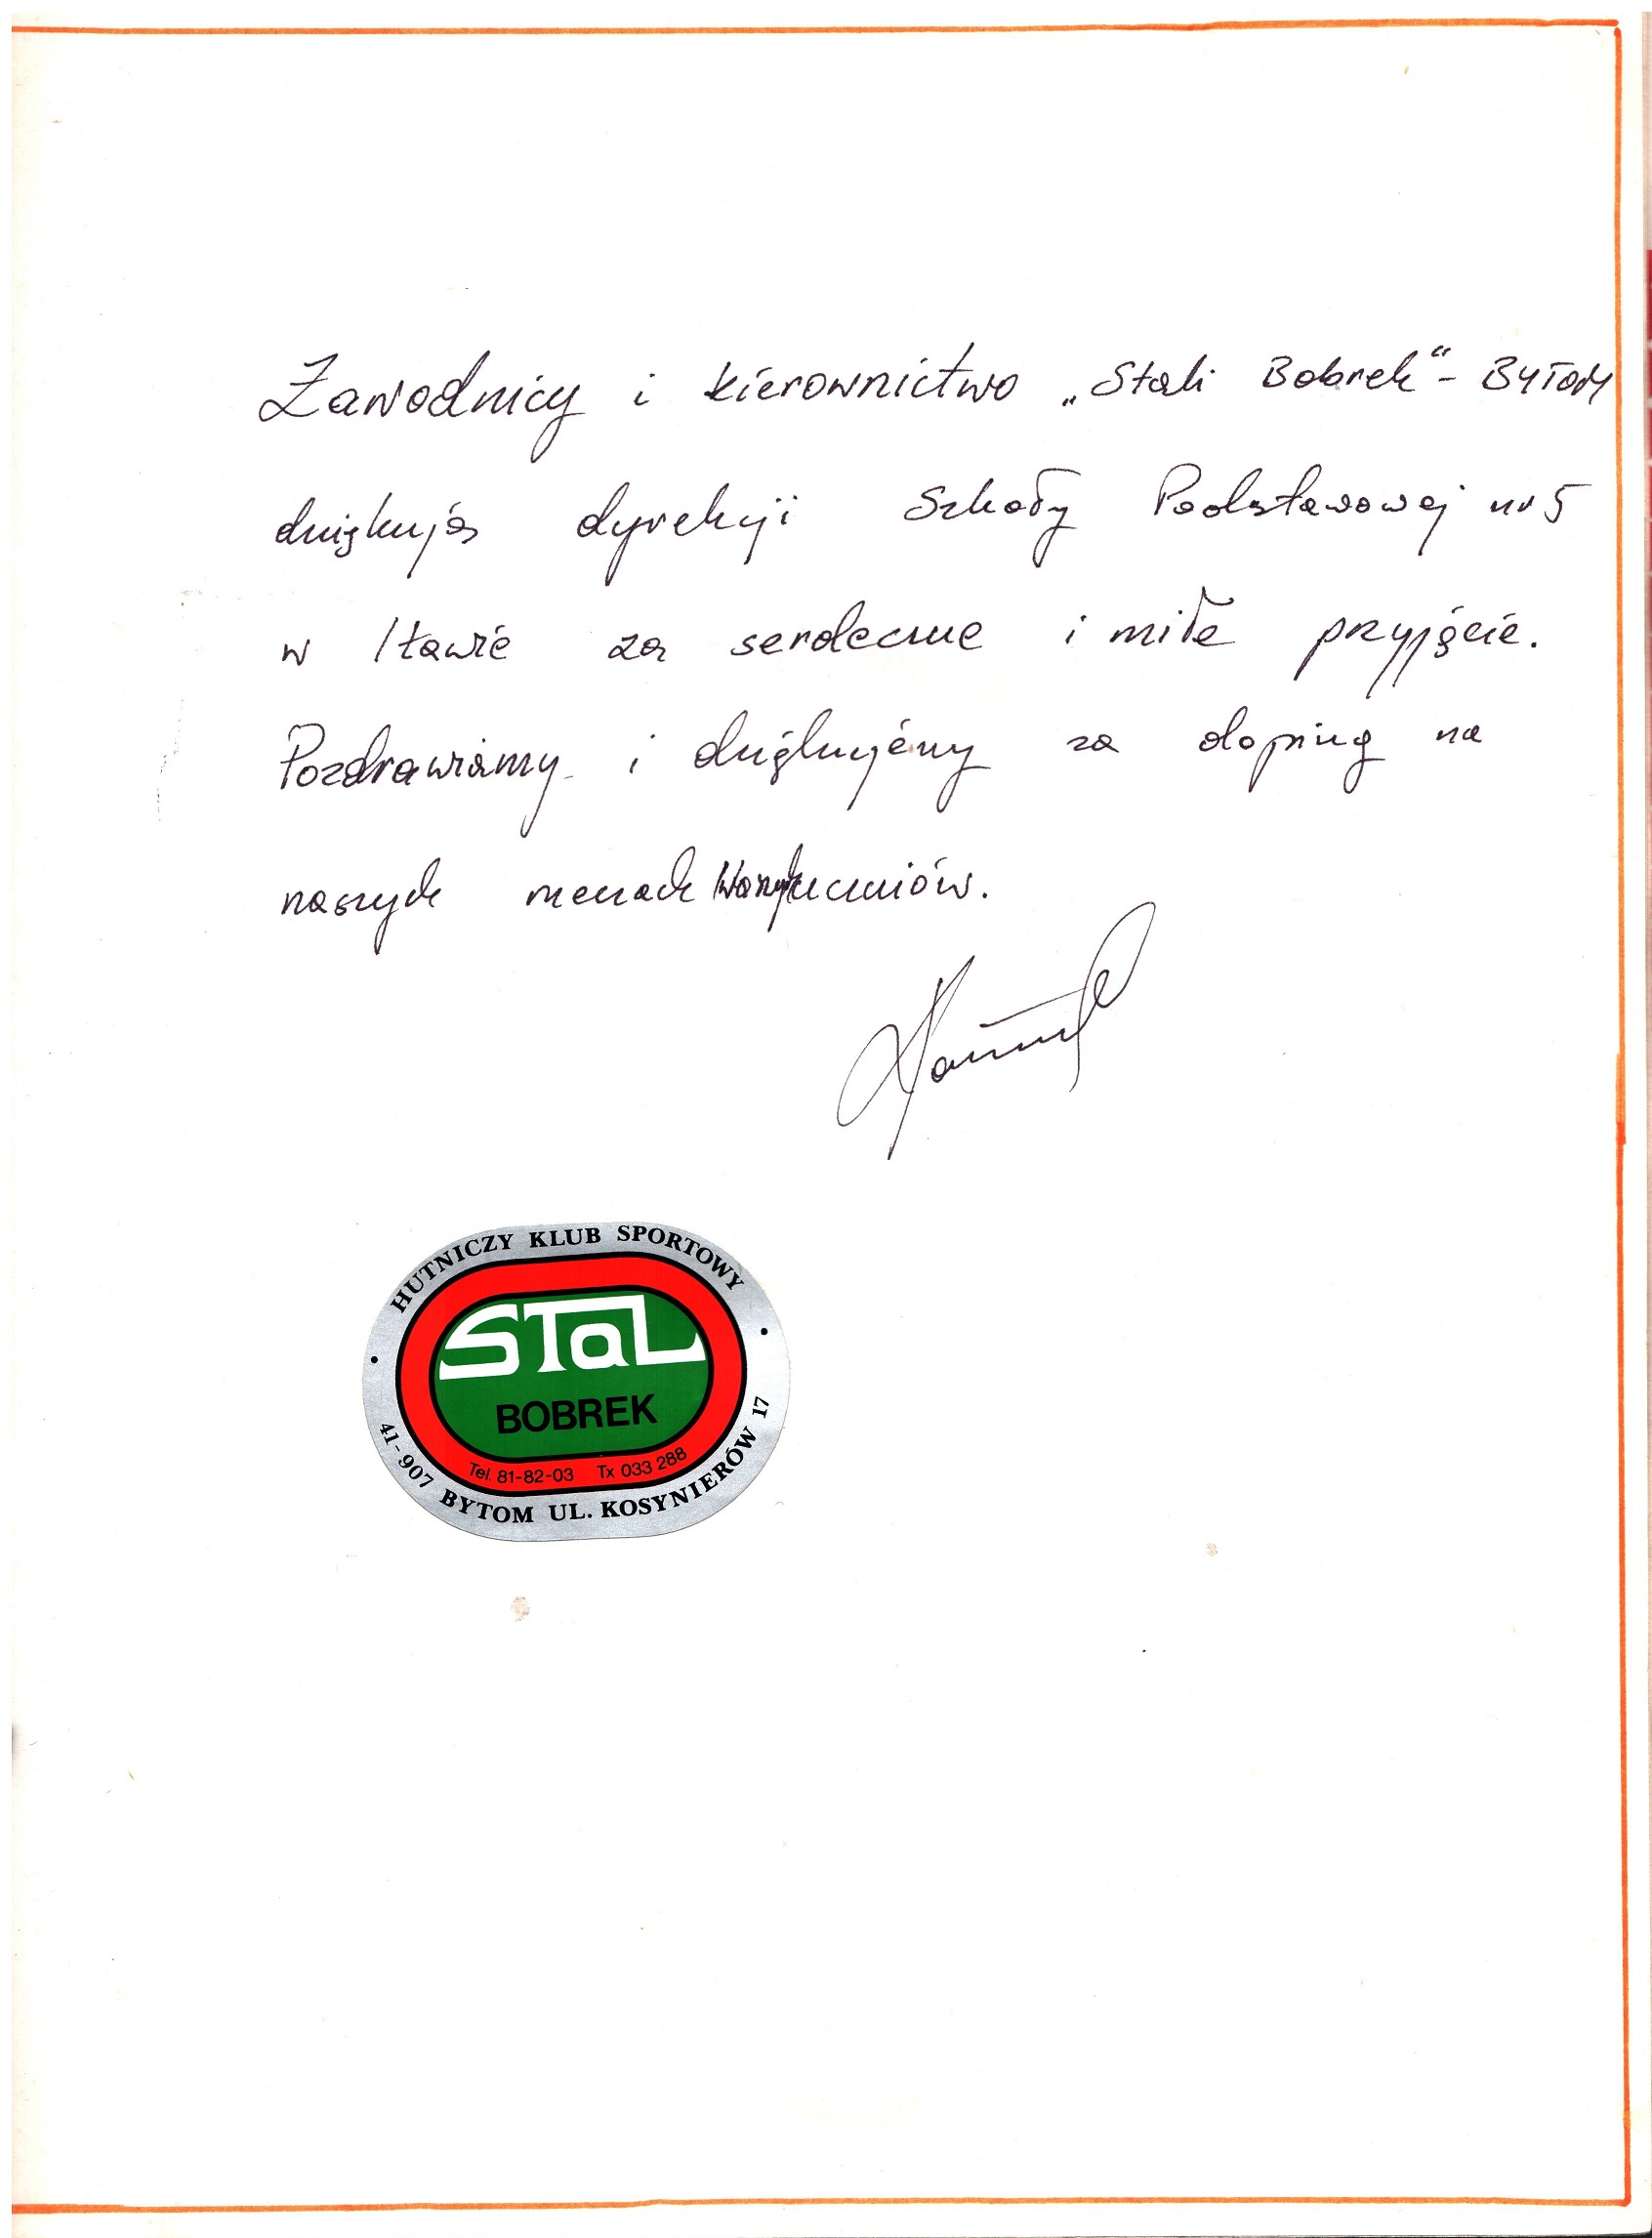 Zawodnicy i kierownictwo „Stali Bobrek" - Bytom
dziękują dyrekcji Szkoły Podstawowej nr 5
w Iławie za serdeczne i miłe przyjęcie.
Pozdrawiamy i dziękujemy za doping na
naszych meczach Waszych uczniów.
HUTNICZY KLUB SPORTOWY
STaL
BOBREK
Tel. 81-82-03 Tx 033 288
41-907 BYTOM UL. KOSYNIERÓW 17